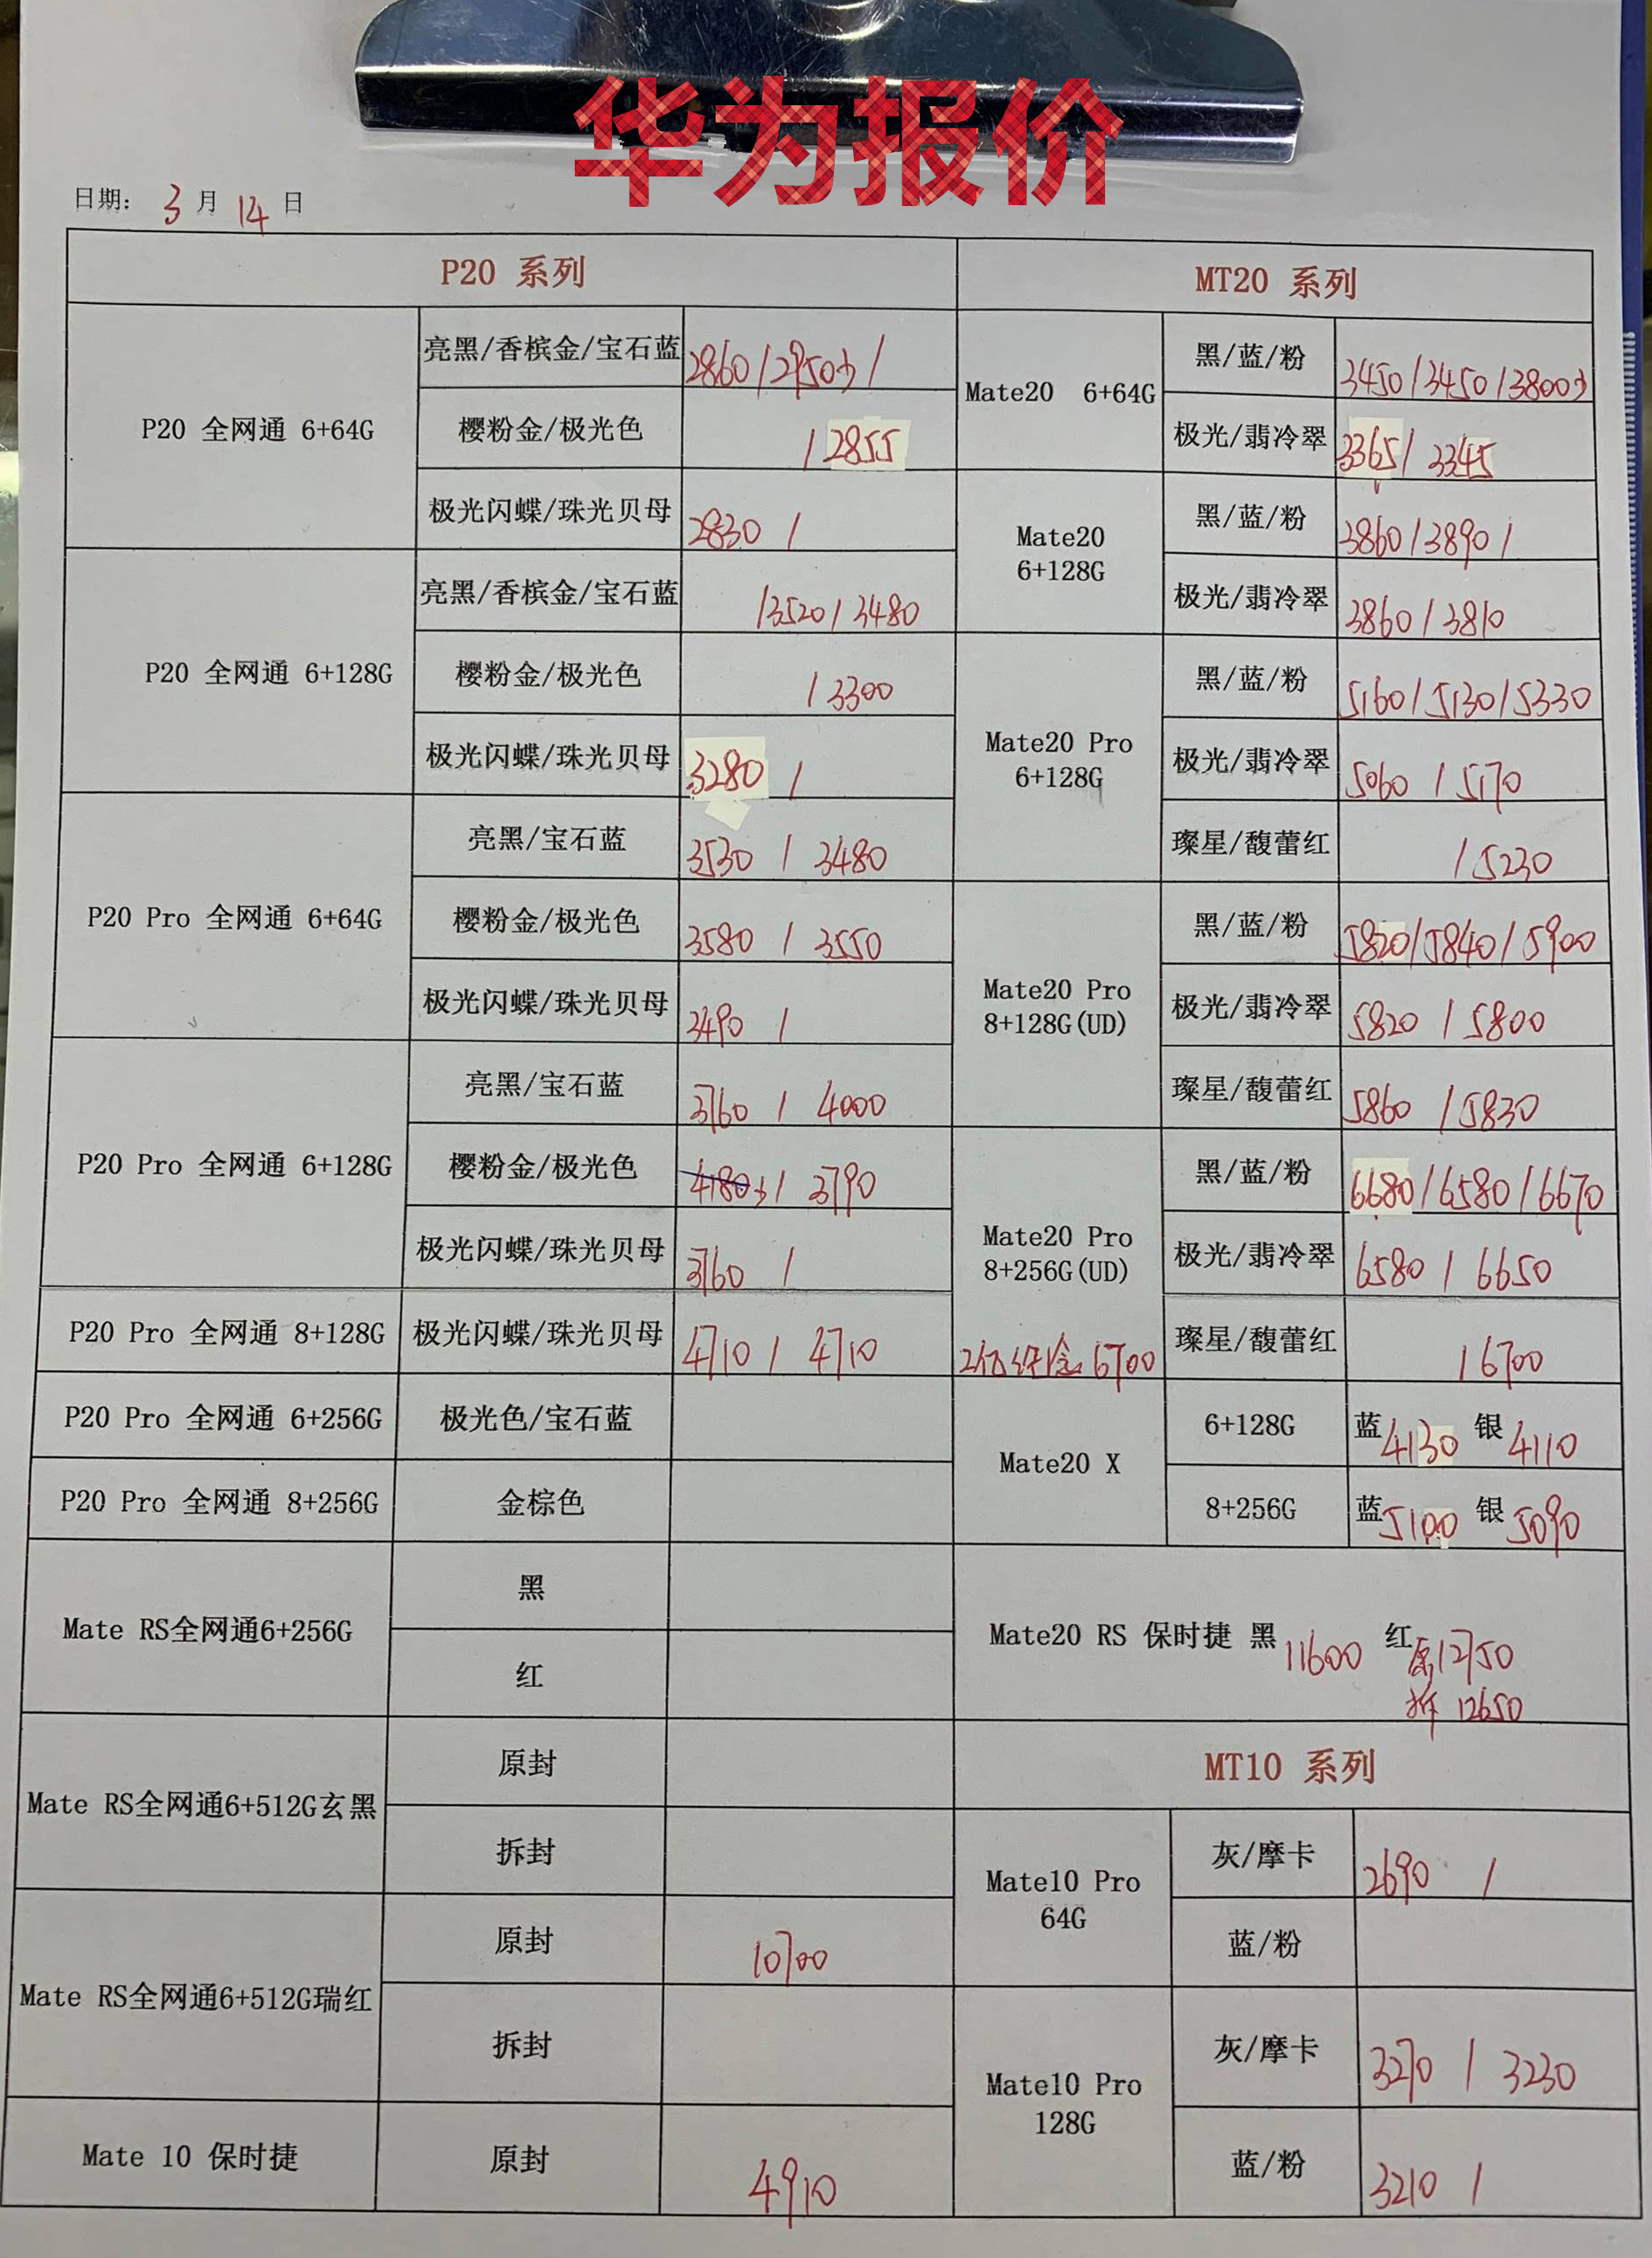 华为报价
日期: 3 月 14 日
P20 系列
P20 全网通 6+64G
亮黑/香槟金/宝石蓝 2860/2950少/
樱粉金/极光色 /2855
极光闪蝶/珠光贝母 2830 /
P20 全网通 6+128G
亮黑/香槟金/宝石蓝 /3520/3480
樱粉金/极光色 /3300
极光闪蝶/珠光贝母 3280 /
P20 Pro 全网通 6+64G
亮黑/宝石蓝 3530 / 3480
樱粉金/极光色 3580 / 3550
极光闪蝶/珠光贝母 3490 /
P20 Pro 全网通 6+128G
亮黑/宝石蓝 3760 / 4000
樱粉金/极光色 4180少/ 3790
极光闪蝶/珠光贝母 3760 /
P20 Pro 全网通 8+128G 极光闪蝶/珠光贝母 4710 / 4710
P20 Pro 全网通 6+256G 极光色/宝石蓝
P20 Pro 全网通 8+256G 金棕色
Mate RS全网通6+256G
黑
红
Mate RS全网通6+512G玄黑
原封
拆封
Mate RS全网通6+512G瑞红
原封 10700
拆封
Mate 10 保时捷 原封 4910
MT20 系列
Mate20 6+64G
黑/蓝/粉 3450/3450/3800少
极光/翡冷翠 3365/ 3345
Mate20
6+128G
黑/蓝/粉 3860/3890/
极光/翡冷翠 3860/3810
Mate20 Pro
6+128G
黑/蓝/粉 5160/5130/5330
极光/翡冷翠 5060 / 5170
璨星/馥蕾红 /5230
Mate20 Pro
8+128G(UD)
黑/蓝/粉 5820/5840/5900
极光/翡冷翠 5820 / 5800
璨星/馥蕾红 5860 / 5830
Mate20 Pro
8+256G(UD)
6700
黑/蓝/粉 6680/6580/6670
极光/翡冷翠 6580 / 6650
璨星/馥蕾红 /6700
Mate20 X
6+128G 蓝4130 银4110
8+256G 蓝5100 银5090
Mate20 RS 保时捷 黑11600 红原12750
拆 12650
MT10 系列
Mate10 Pro
64G
灰/摩卡 2690 /
蓝/粉
Mate10 Pro
128G
灰/摩卡 3270 / 3230
蓝/粉 3210 /